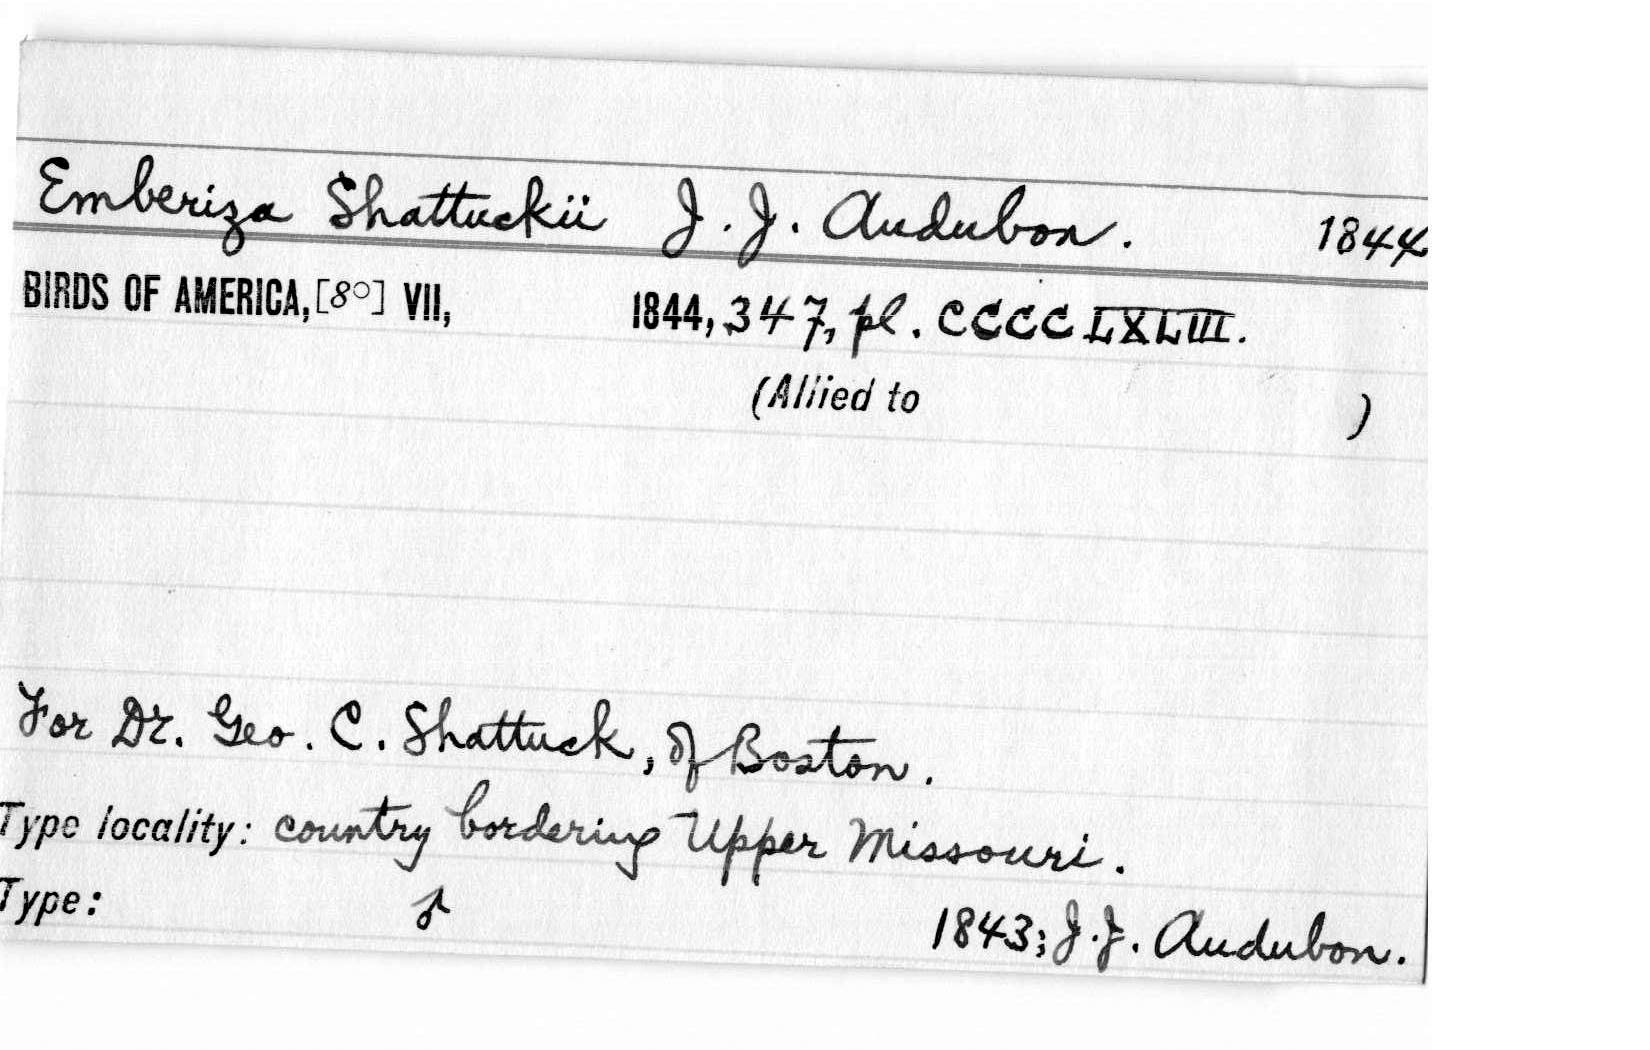 Emberiza Shattuckii J. J. Audubon. 1844
BIRDS OF AMERICA, [8°] VII, 1844, 347, pl. CCCCLXLIII.
(Allied to )
For Dr. Geo. C. Shattuck, of Boston.
Type locality: country bordering Upper Missouri.
Type: ♂ 1843; J. J. Audubon.